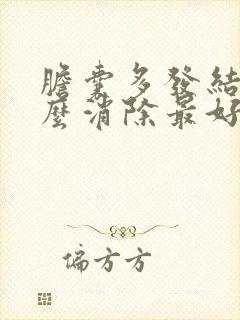 膽囊多發結
麼消除最好
偏方方